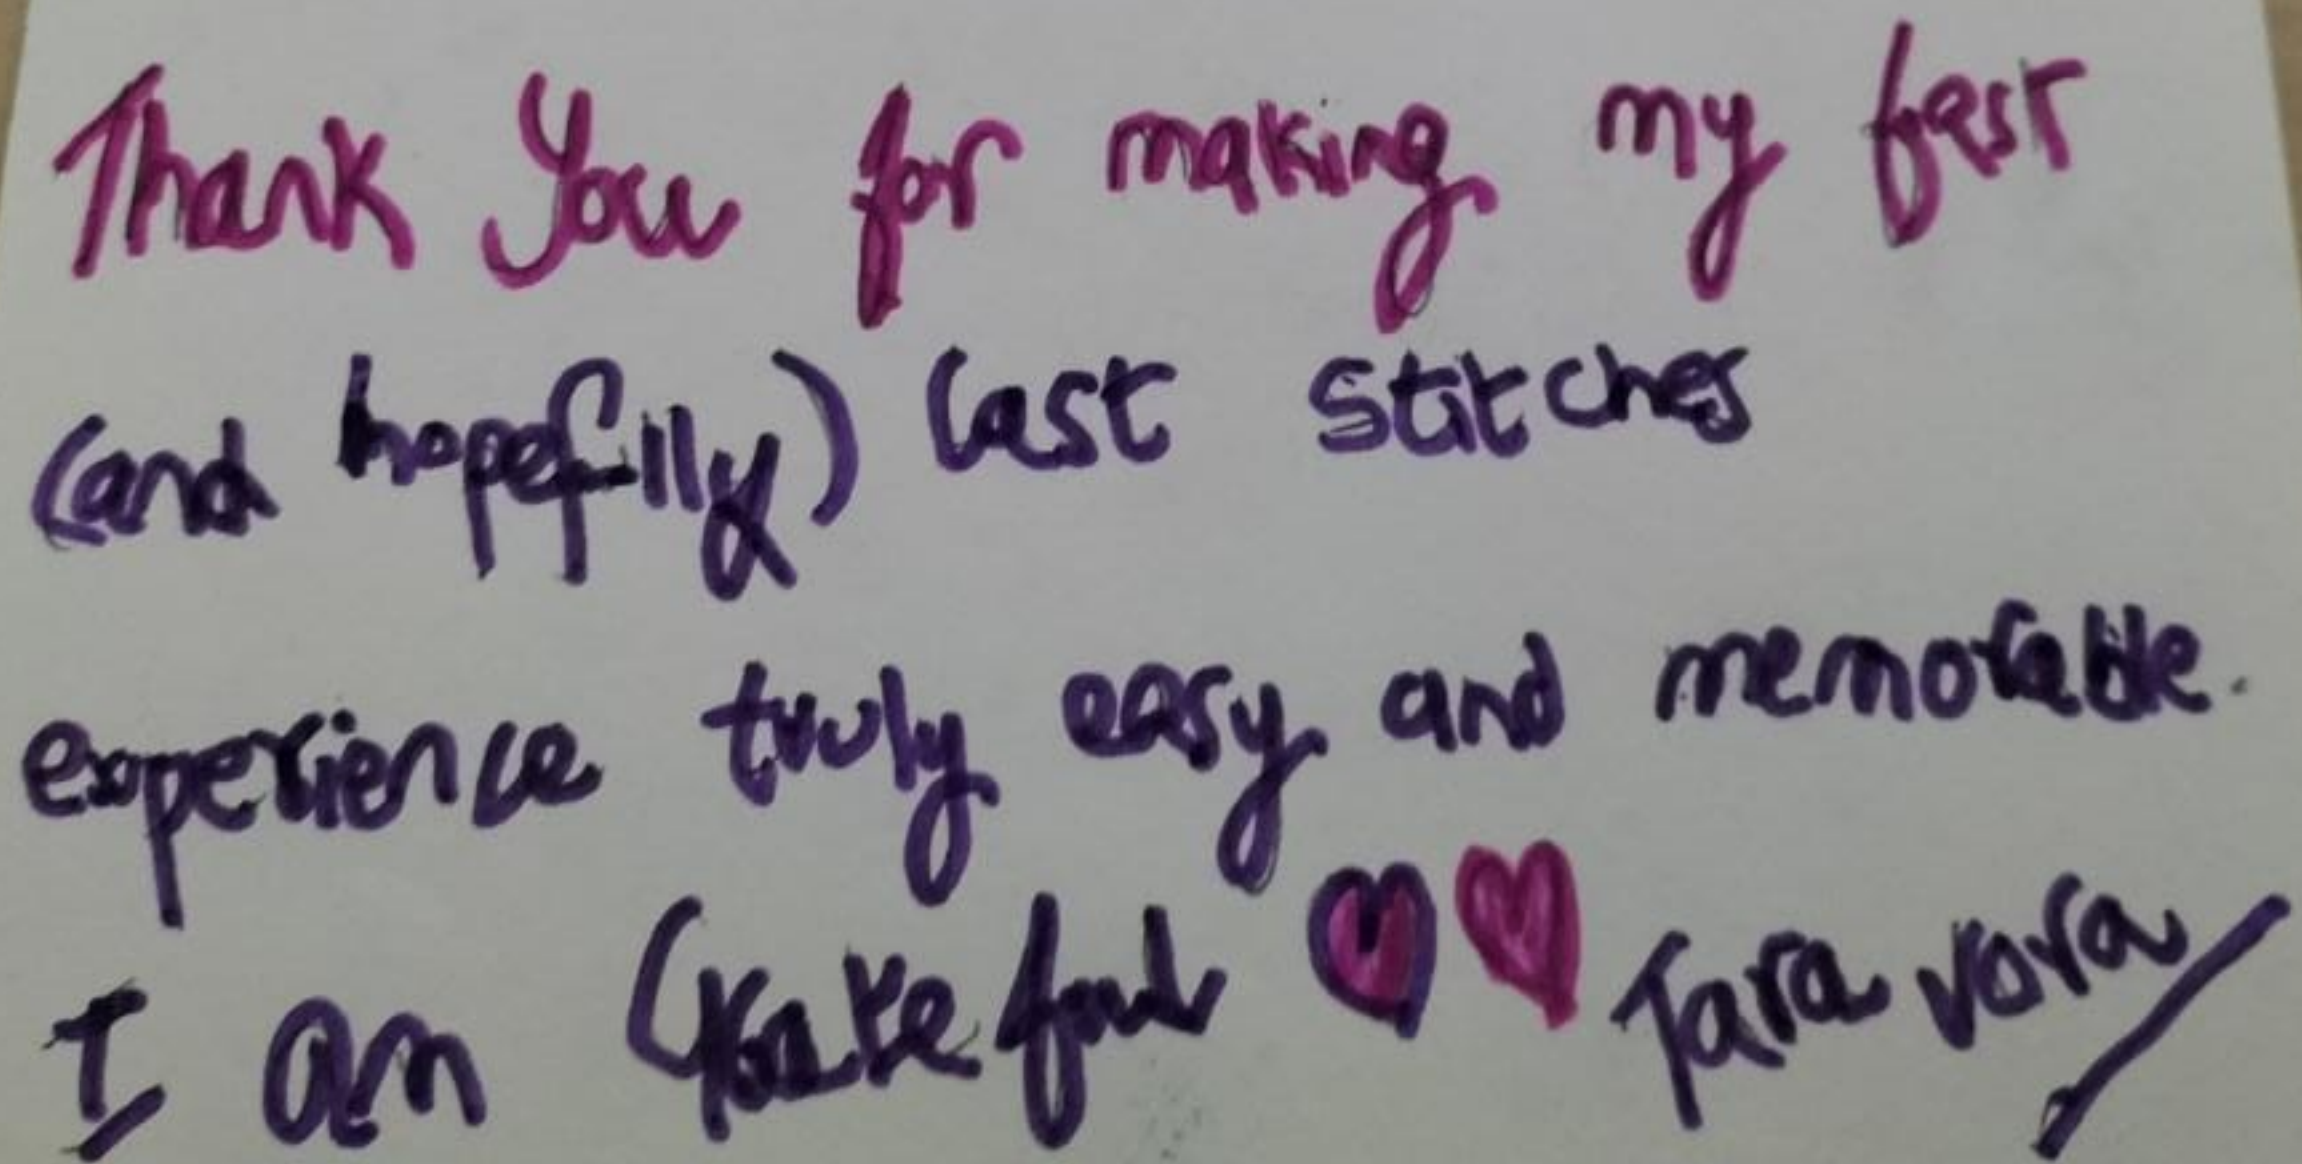 Thank You for making my first
(and hopefully) last stitches
experience truly easy and memorable.
I am Grateful Tara Vora